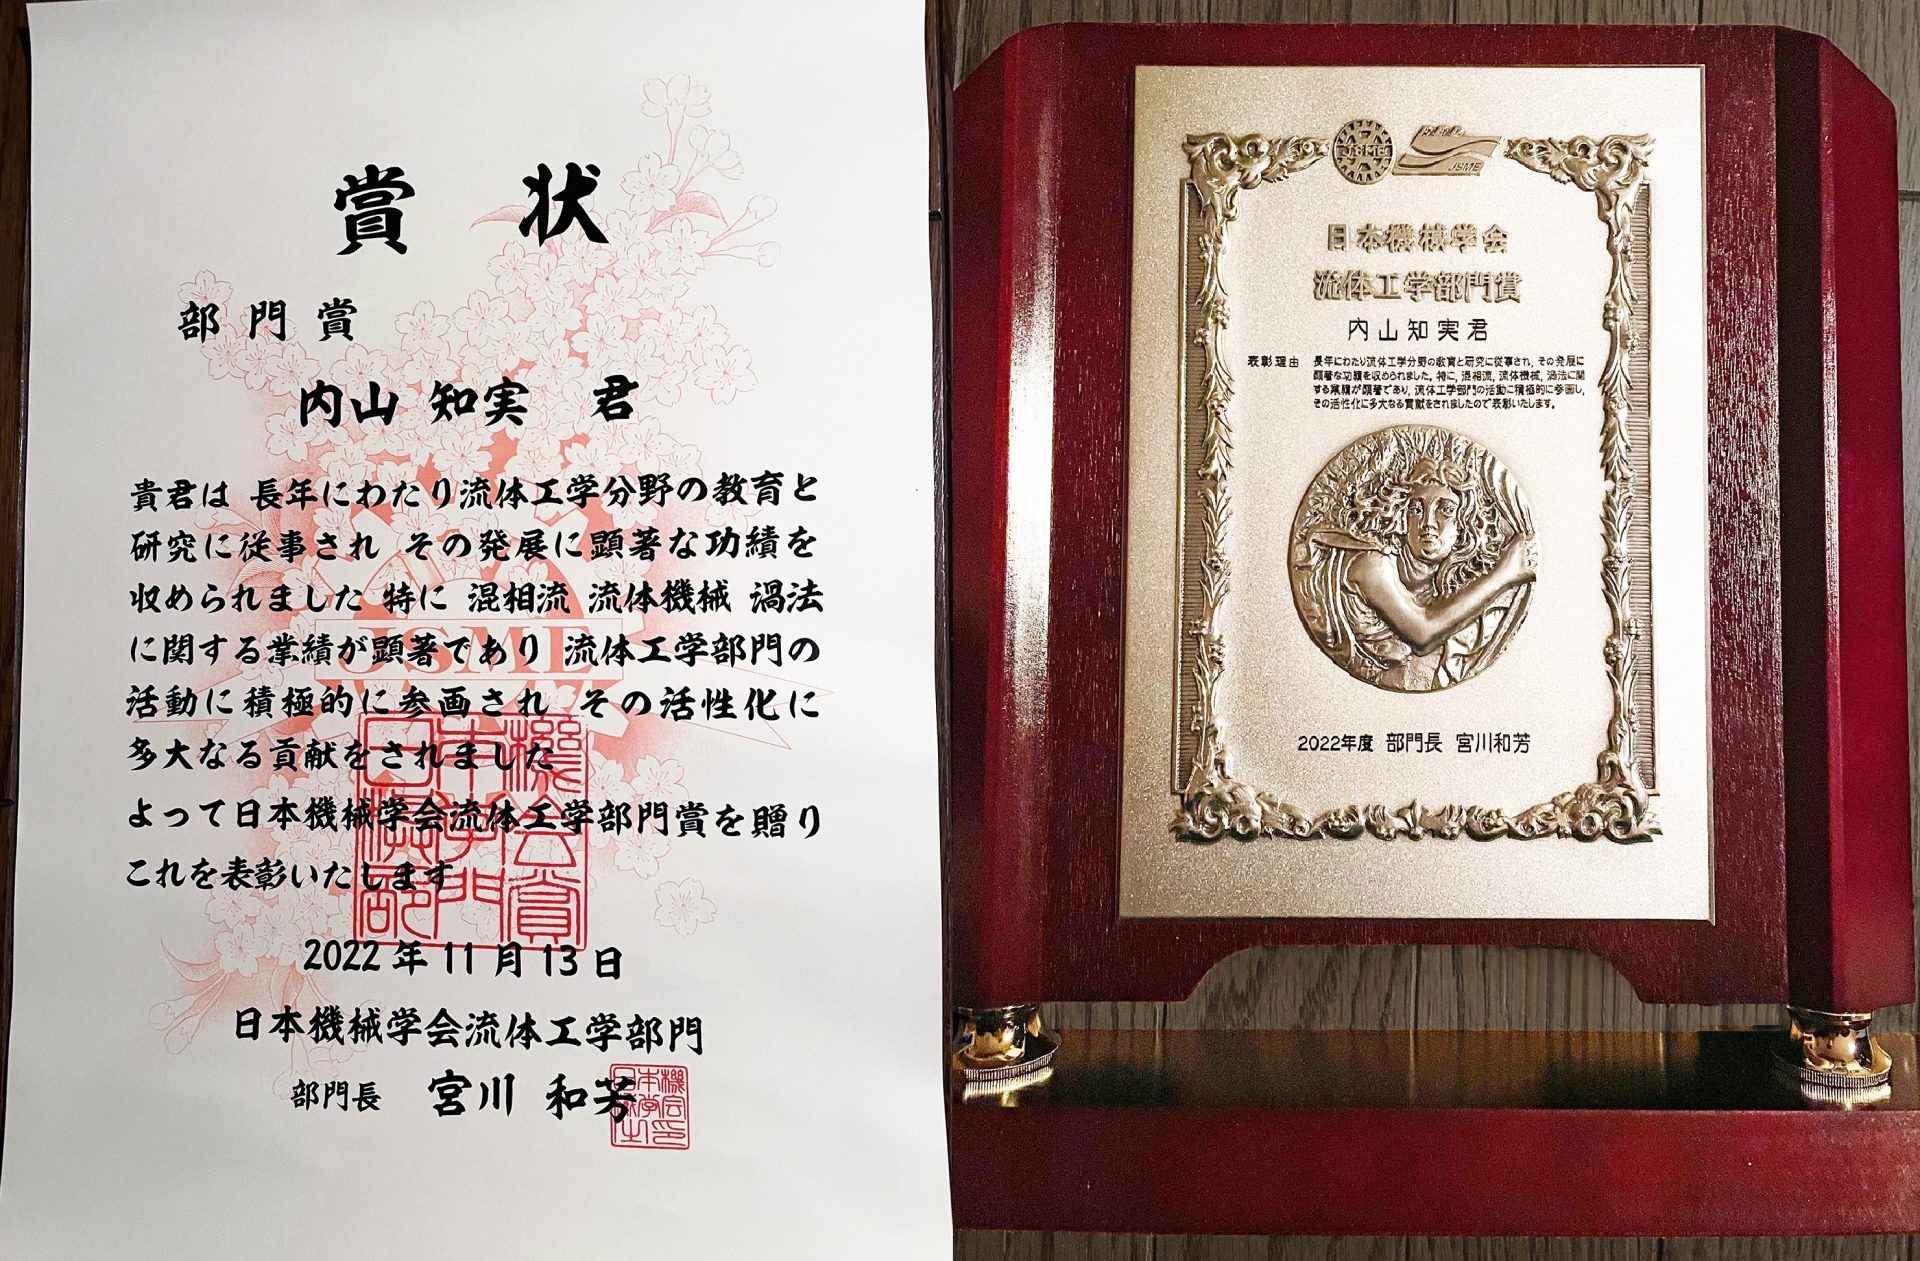 賞 状
部 門 賞
内山 知実 君
貴君は 長年にわたり流体工学分野の教育と
研究に従事され その発展に顕著な功績を
収められました 特に 混相流 流体機械 渦法
に関する業績が顕著であり 流体工学部門の
活動に積極的に参画され その活性化に
多大なる貢献をされました
よって日本機械学会流体工学部門賞を贈り
これを表彰いたします
2022年11月13日
日本機械学会流体工学部門
部門長 宮川 和芳
JSME
JSME
JSME
日本機械学会
流体工学部門賞
内山知実君
表彰理由 長年にわたり流体工学分野の教育と研究に従事され, その発展に
顕著な功績を収められました. 特に, 混相流, 流体機械, 渦法に関
する業績が顕著であり, 流体工学部門の活動に積極的に参画し,
その活性化に多大なる貢献をされましたので表彰いたします.
2022年度 部門長 宮川和芳